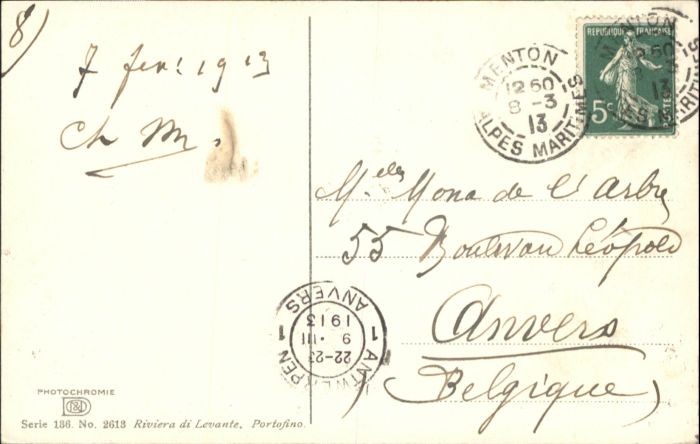 8)
7 fev. 1913
Ch M.
PHOTOCHROMIE
Serie 186. No. 2613 Riviera di Levante. Portofino.
MENTON
12 50
8 - 3
13
ALPES MARITIMES
REPUBLIQUE FRANÇAISE
5c
POSTES
MENTON
12 50
13
MARITIMES
Melle Mona de l'Arbre
55 Boulevau Léopold
Anvers
(Belgique)
1 ANTWERPEN 1
22-23
9 • III
1913
ANVERS